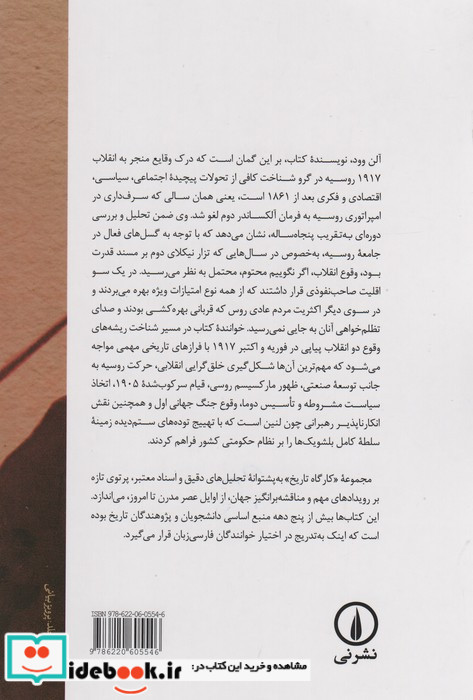 آلن وود، نویسندهٔ کتاب، بر این گمان است که درک وقایع منجر به انقلاب
۱۹۱۷ روسیه در گرو شناخت کافی از تحولات پیچیدهٔ اجتماعی، سیاسی،
اقتصادی و فکری بعد از ۱۸۶۱ است، یعنی همان سالی که سرف‌داری در
امپراتوری روسیه به فرمان آلکساندر دوم لغو شد. وی ضمن تحلیل و بررسی
دوره‌ای به‌تقریب پنجاه‌ساله، نشان می‌دهد که با توجه به گسل‌های فعال در
جامعهٔ روسیه، به‌خصوص در سال‌هایی که تزار نیکلای دوم بر مسند قدرت
بود، وقوع انقلاب، اگر نگوییم محتوم، محتمل به نظر می‌رسید. در یک سو
اقلیت صاحب‌نفوذی قرار داشتند که از همه نوع امتیازات ویژه بهره می‌بردند و
در سوی دیگر اکثریت مردم عادی روس که قربانی بهره‌کشی بودند و صدای
تظلم‌خواهی آنان به جایی نمی‌رسید. خوانندهٔ کتاب در مسیر شناخت ریشه‌های
وقوع دو انقلاب پیاپی در فوریه و اکتبر ۱۹۱۷ با فرازهای تاریخی مهمی مواجه
می‌شود که مهم‌ترین آن‌ها شکل‌گیری خلق‌گرایی انقلابی، حرکت روسیه به
جانب توسعهٔ صنعتی، ظهور مارکسیسم روسی، قیام سرکوب‌شدهٔ ۱۹۰۵، اتخاذ
سیاست مشروطه و تأسیس دوما، وقوع جنگ جهانی اول و همچنین نقش
انکارناپذیر رهبرانی چون لنین است که با تهییج توده‌های ستم‌دیده زمینهٔ
سلطهٔ کامل بلشویک‌ها را بر نظام حکومتی کشور فراهم کردند.
مجموعهٔ «کارگاه تاریخ» به‌پشتوانهٔ تحلیل‌های دقیق و اسناد معتبر، پرتوی تازه
بر رویدادهای مهم و مناقشه‌برانگیز جهان، از اوایل عصر مدرن تا امروز، می‌اندازد.
این کتاب‌ها بیش از پنج دهه منبع اساسی دانشجویان و پژوهندگان تاریخ بوده
است که اینک به‌تدریج در اختیار خوانندگان فارسی‌زبان قرار می‌گیرد.
جلد: پرویز بیانی
ISBN 978-622-06-0554-6
9 786220 605546
نشرنی
مشاهده و خرید این کتاب در:
idebook.ir